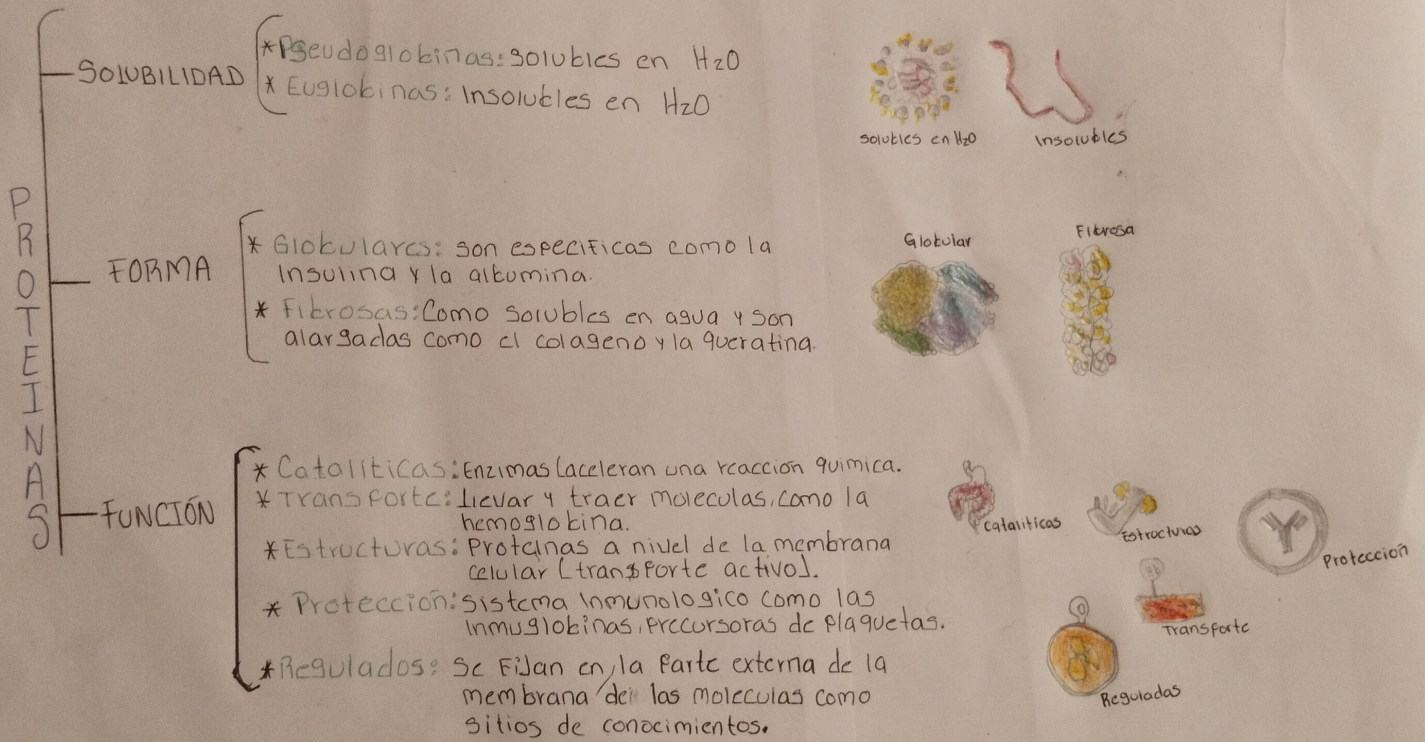 PROTEINAS
SOLUBILIDAD
*Pseudoglobinas: solubles en H2O
* Euglobinas: Insolubles en H2O
solubles en H2O
Insolubles
FORMA
* Globulares: son especificas como la
Insulina y la albumina.
* Fibrosas: Como solubles en agua y son
alargadas como el colageno y la queratina.
Globular
Fibrosa
FUNCIÓN
* Cataliticas: Enzimas (aceleran una reacción quimica.
* Transporte: Llevar y traer moleculas, como la
hemoglobina.
* Estructuras: Proteinas a nivel de la membrana
celular (transporte activo).
* Protección: Sistema Inmunologico como las
inmuglobinas, precursoras de plaquetas.
* Regulados: Se Fijan en la parte externa de la
membrana de las moleculas como
sitios de conocimientos.
Cataliticas
Estructuras
Protección
Hb
Transporte
Reguladas